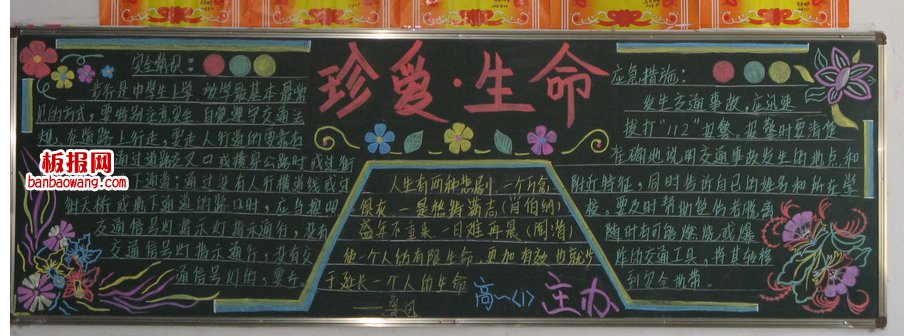 珍爱·生命
安全常识:
步行是中学生上学 放学最基本 最常
见的方式,要特别注意安全 自觉遵守交通法
规,在道路上行走,要走人行道的
通过道路交叉口或横过公路时或过街
下通道;通过没有人行横道线或过
街天桥或地下通道的路口时,应当按照
交通信号灯指示灯通行,没有
交通信号灯指示通行,没有交
通信号灯的,要在
板报网
banbaowang.com
人生有两种悲剧 一个万念
俱灰,一是踌躇满志(肖伯纳)
盛年不重来 一日难再晨(陶潜)
使一个人的有限生命,更加有效 也就
于延长一个人的生命
——鲁迅
高一〈1〉主办
应急措施:
发生交通事故,应迅速
拨打“112”报警。报警时要清楚
准确地说明交通事故发生的地点和
附近特征,同时告诉自己的姓名和所在学
校。要及时帮助受伤者脱离
随时有可能燃烧或爆
炸的交通工具,将其转移
到安全地带。